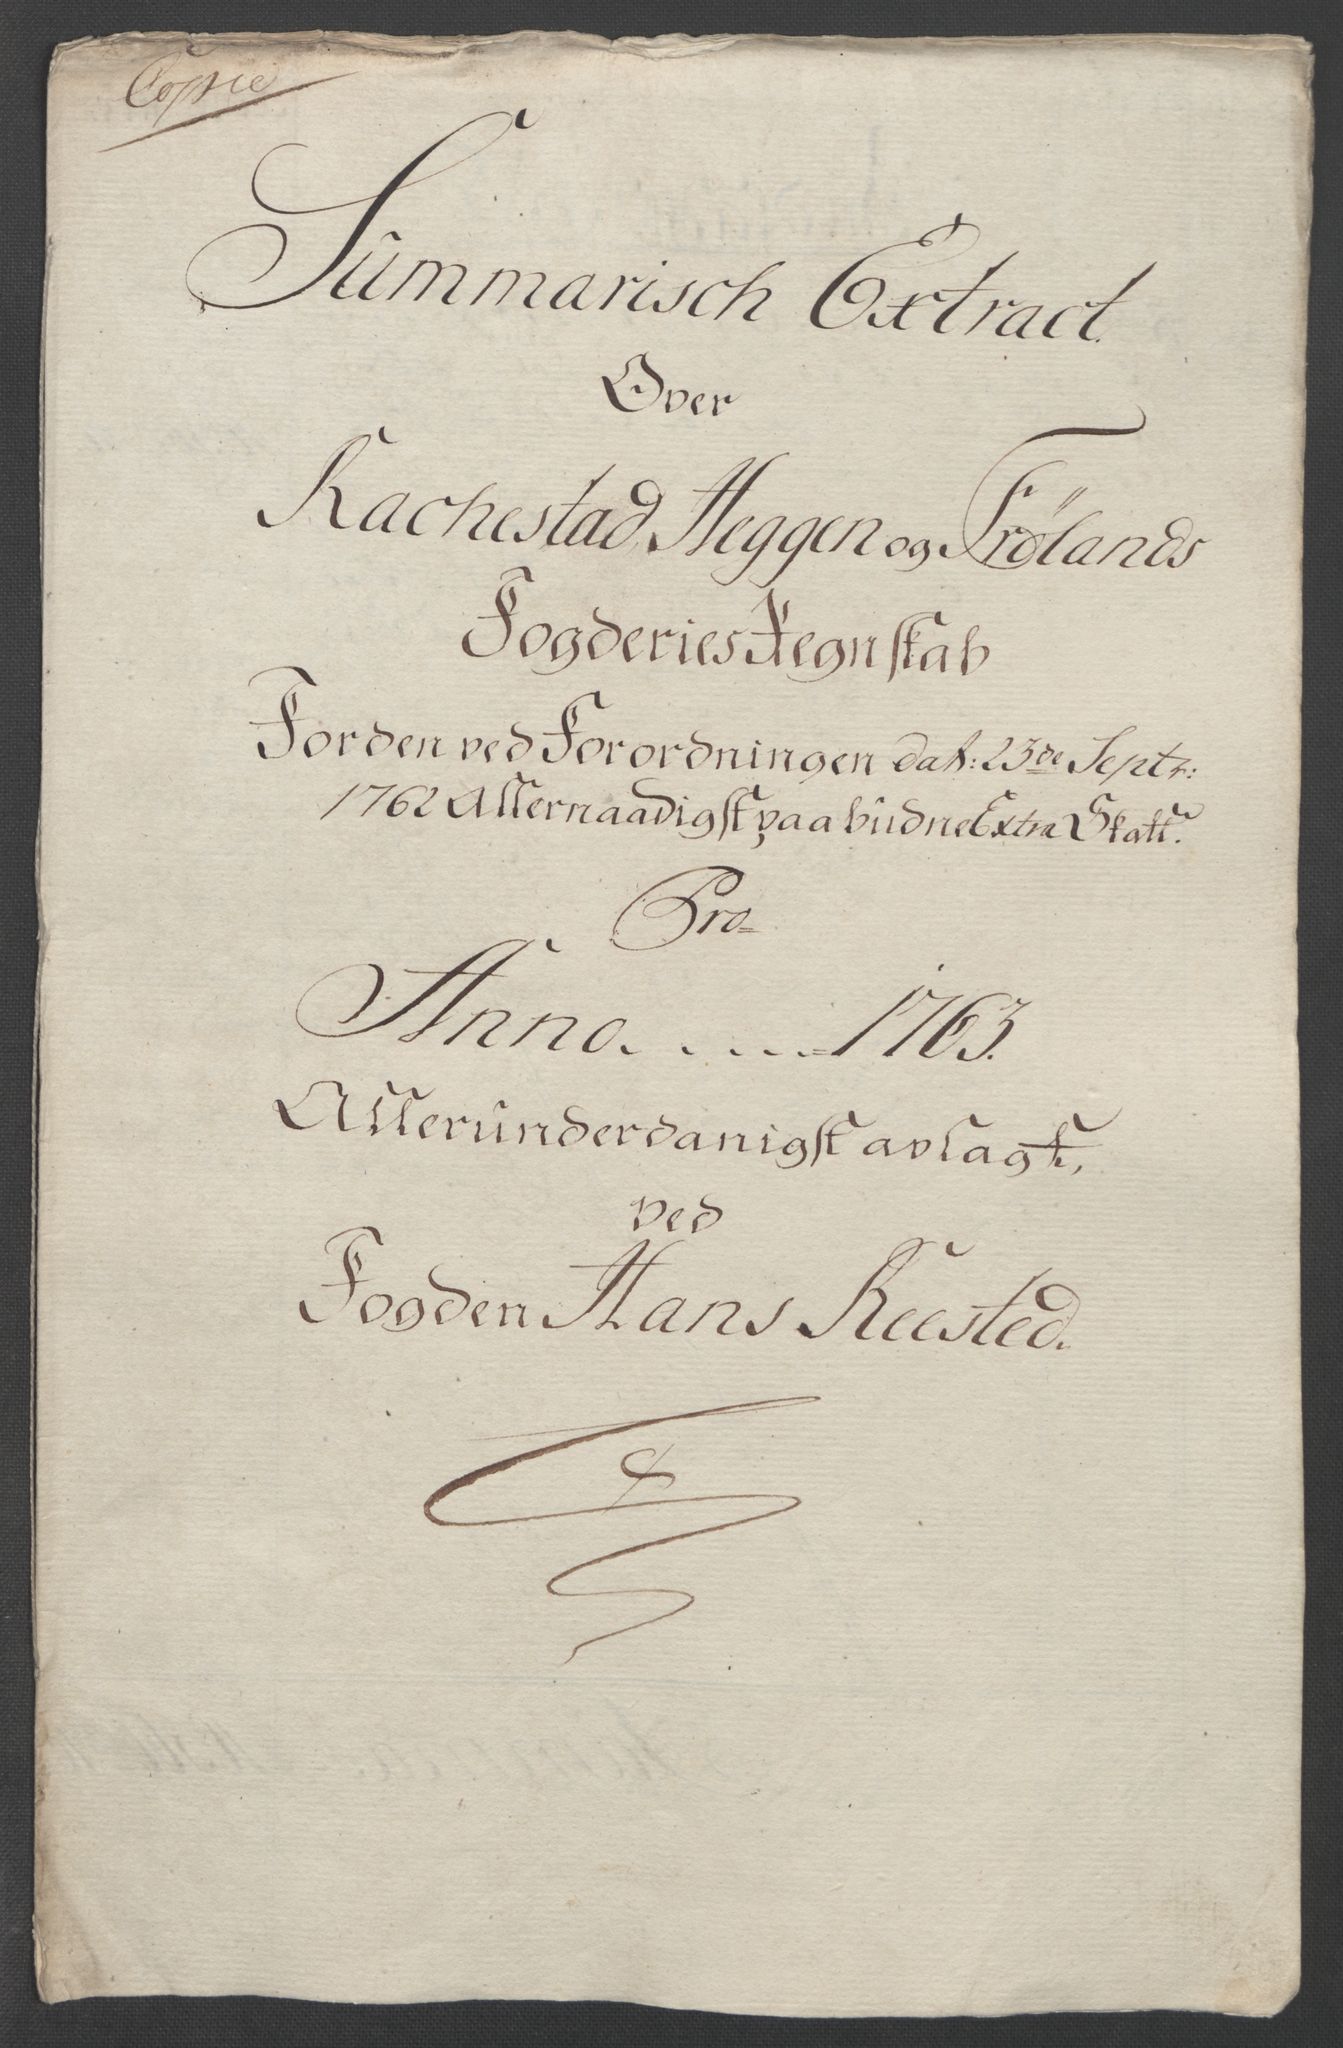 Copie
Summarisch Extract
Over
Rachestad, Heggen og Frölands
Fogderies Regnskab
For den ved Forordningen dat: 23de Septr:
1762 Allernaadigst paabudne Extra Skatt.
Pro
Anno . . . . . 1763.
Allerunderdanigst avlagt,
ved
Fogden Hans Reested.